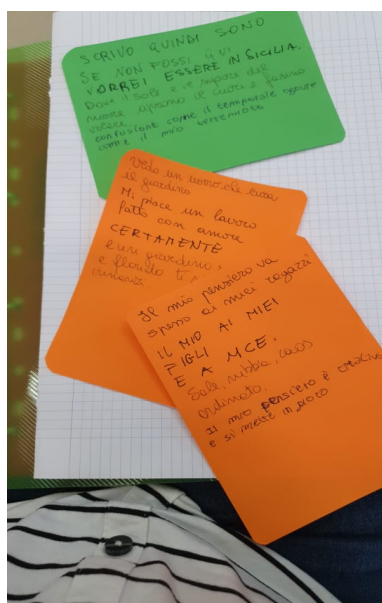 SCRIVO QUINDI SONO
SE NON FOSSI QUI
VORREI ESSERE IN SICILIA.
Dove il sole e il sapore del
mare aprono il cuore e fanno
volare
confusione come il temporale oppure
come il mio terremoto
Vedo un uomo che cura
il giardino
Mi piace un lavoro
fatto con amore
CERTAMENTE
è un giardino,
e florido ti
rimani
Il mio pensiero va
spesso ai miei ragazzi
IL MIO AI MIEI
FIGLI
E A MCE.
Sole, nebbia, caos
ordinato.
Il mio pensiero è creativo
e si mette in gioco